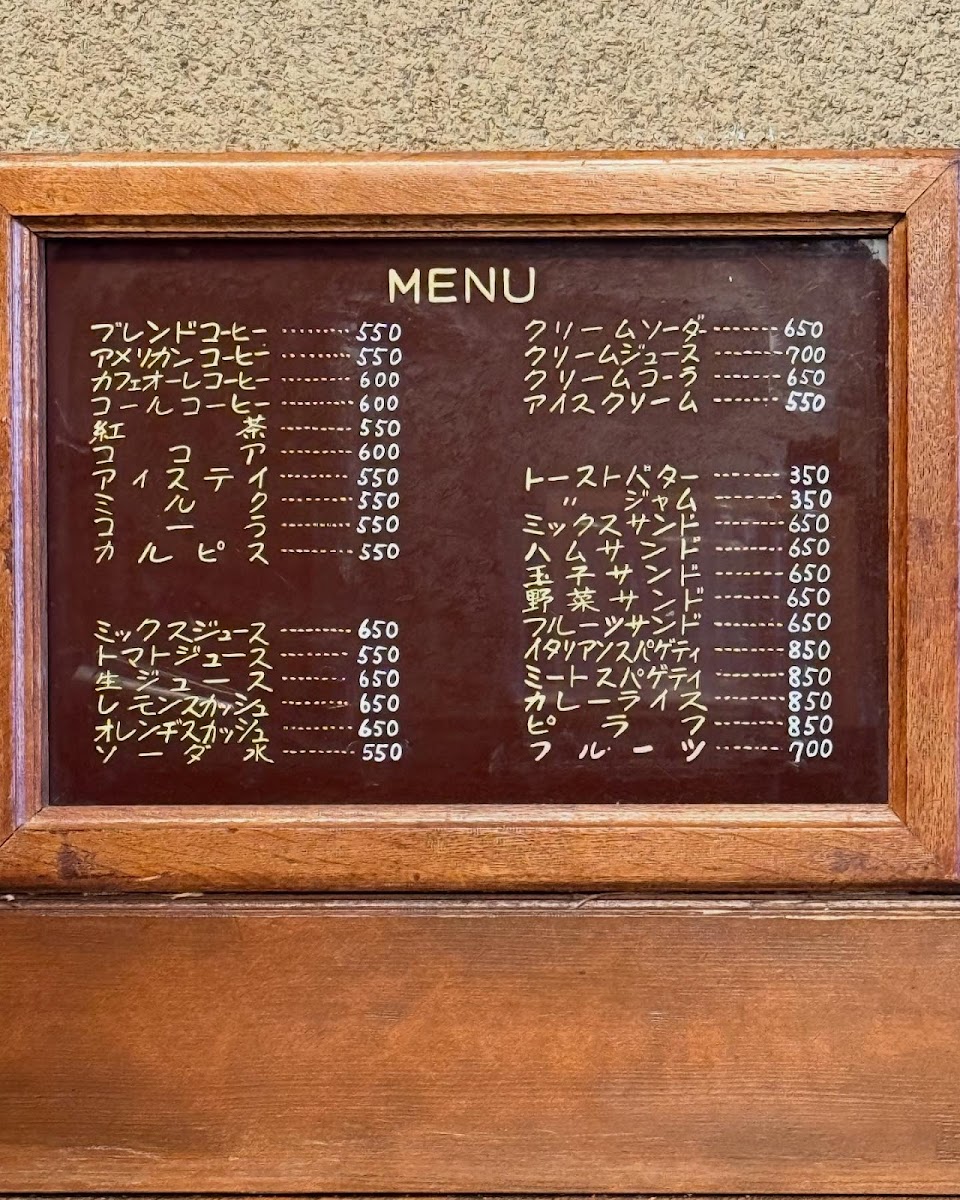 MENU
ブレンドコーヒー 550
アメリカンコーヒー 550
カフェオーレコーヒー 600
コールコーヒー 600
紅茶 550
ココア 600
アイスティ 550
ミルク 550
コーラ 550
カルピス 550
ミックスジュース 650
トマトジュース 550
生ジュース 650
レモンスカッシュ 650
オレンヂスカッシュ 650
ソーダ水 550
クリームソーダ 650
クリームジュース 700
クリームコーラ 650
アイスクリーム 550
トーストバター 350
〃 ジャム 350
ミックスサンド 650
ハムサンド 650
玉子サンド 650
野菜サンド 650
フルーツサンド 650
イタリアンスパゲティ 850
ミートスパゲティ 850
カレーライス 850
ピラフ 850
フルーツ 700